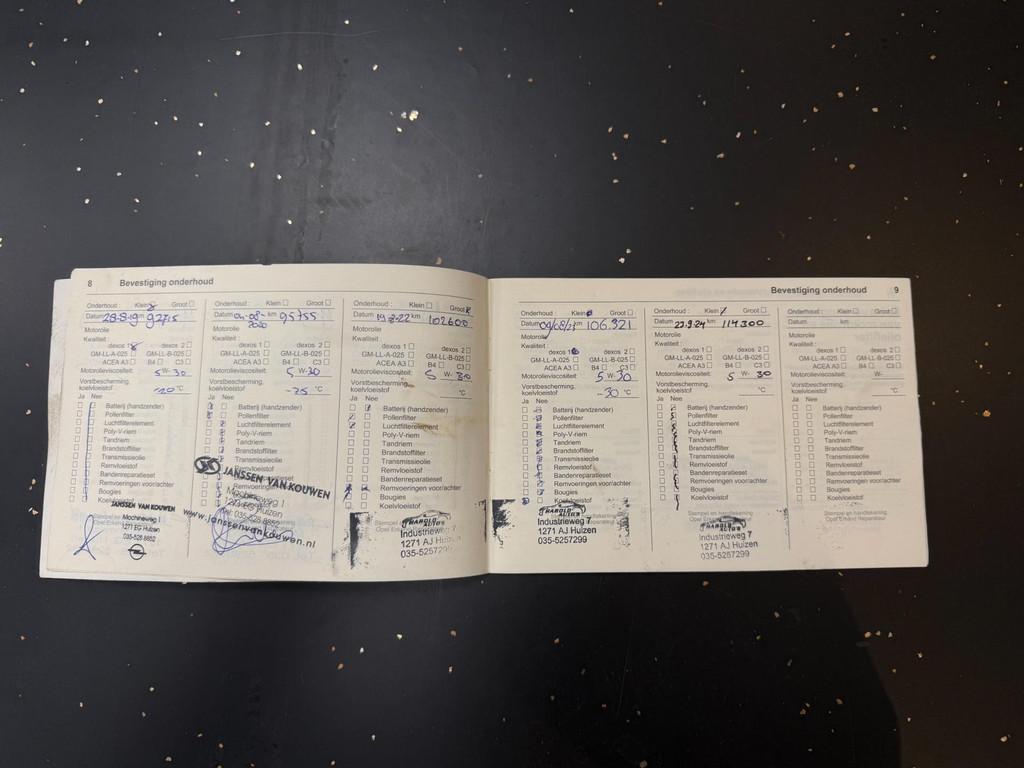 8 Bevestiging onderhoud
Onderhoud : Klein Groot
Datum 28-8-19 km 92715
Motorolie
Kwaliteit :
dexos 1 dexos 2
GM-LL-A-025 GM-LL-B-025
ACEA A3 B4 C3
Motorolieviscositeit: 5 W- 30
Vorstbescherming,
koelvloeistof °C
Ja Nee
Batterij (handzender)
Pollenfilter
Luchtfilterelement
Poly-V-riem
Tandriem
Brandstoffilter
Transmissieolie
Remvloeistof
Bandenreparatieset
Remvoeringen voor/achter
Bougies
Koelvloeistof
JANSSEN VAN KOUWEN
Mochineweg 1
1271 EG Huizen
035-526 8852
Onderhoud : Klein Groot
Datum 04-08- km 95755
2020
Motorolie
Kwaliteit :
dexos 1 dexos 2
GM-LL-A-025 GM-LL-B-025
ACEA A3 B4 C3
Motorolieviscositeit: 5 W- 30
Vorstbescherming,
koelvloeistof -25 °C
Ja Nee
Batterij (handzender)
Pollenfilter
Luchtfilterelement
Poly-V-riem
Tandriem
Brandstoffilter
Transmissieolie
JANSSEN VAN KOUWEN
1271 EG Huizen
www.janssenvankouwen.nl
Onderhoud : Klein Groot
Datum 19-8-22 km 102600
Motorolie
Kwaliteit :
dexos 1 dexos 2
GM-LL-A-025 GM-LL-B-025
ACEA A3 B4 C3
Motorolieviscositeit: 5 W- 30
Vorstbescherming,
koelvloeistof °C
Ja Nee
Batterij (handzender)
Pollenfilter
Luchtfilterelement
Poly-V-riem
Tandriem
Brandstoffilter
Transmissieolie
Remvloeistof
Bandenreparatieset
Remvoeringen voor/achter
Bougies
Koelvloeistof
HAROLD
AUTO'S
Industrieweg 7
1271 AJ Huizen
035-5257299
Bevestiging onderhoud 9
Onderhoud : Klein Groot
Datum 09/08/23 km 106.321
Motorolie
Kwaliteit :
dexos 1 dexos 2
GM-LL-A-025 GM-LL-B-025
ACEA A3 B4 C3
Motorolieviscositeit: 5 W- 30
Vorstbescherming,
koelvloeistof -30 °C
Ja Nee
Batterij (handzender)
Pollenfilter
Luchtfilterelement
Poly-V-riem
Tandriem
Brandstoffilter
Transmissieolie
Remvloeistof
Bandenreparatieset
Remvoeringen voor/achter
Bougies
Koelvloeistof
HAROLD
AUTO'S
Industrieweg 7
1271 AJ Huizen
035-5257299
Onderhoud : Klein Groot
Datum 23-9-24 km 114300
Motorolie
Kwaliteit :
dexos 1 dexos 2
GM-LL-A-025 GM-LL-B-025
ACEA A3 B4 C3
Motorolieviscositeit: 5 W- 30
Vorstbescherming,
koelvloeistof °C
Ja Nee
Batterij (handzender)
Pollenfilter
Luchtfilterelement
Poly-V-riem
Tandriem
Brandstoffilter
Transmissieolie
Remvloeistof
Bandenreparatieset
Remvoeringen voor/achter
Bougies
Koelvloeistof
Stempel en handtekening
HAROLD
AUTO'S
Industrieweg 7
1271 AJ Huizen
035-5257299
Onderhoud : Klein Groot
Datum km
Motorolie
Kwaliteit :
dexos 1 dexos 2
GM-LL-A-025 GM-LL-B-025
ACEA A3 B4 C3
Motorolieviscositeit: W-
Vorstbescherming,
koelvloeistof °C
Ja Nee
Batterij (handzender)
Pollenfilter
Luchtfilterelement
Poly-V-riem
Tandriem
Brandstoffilter
Transmissieolie
Remvloeistof
Bandenreparatieset
Remvoeringen voor/achter
Bougies
Koelvloeistof
Stempel en handtekening
Opel Erkend Reparateur